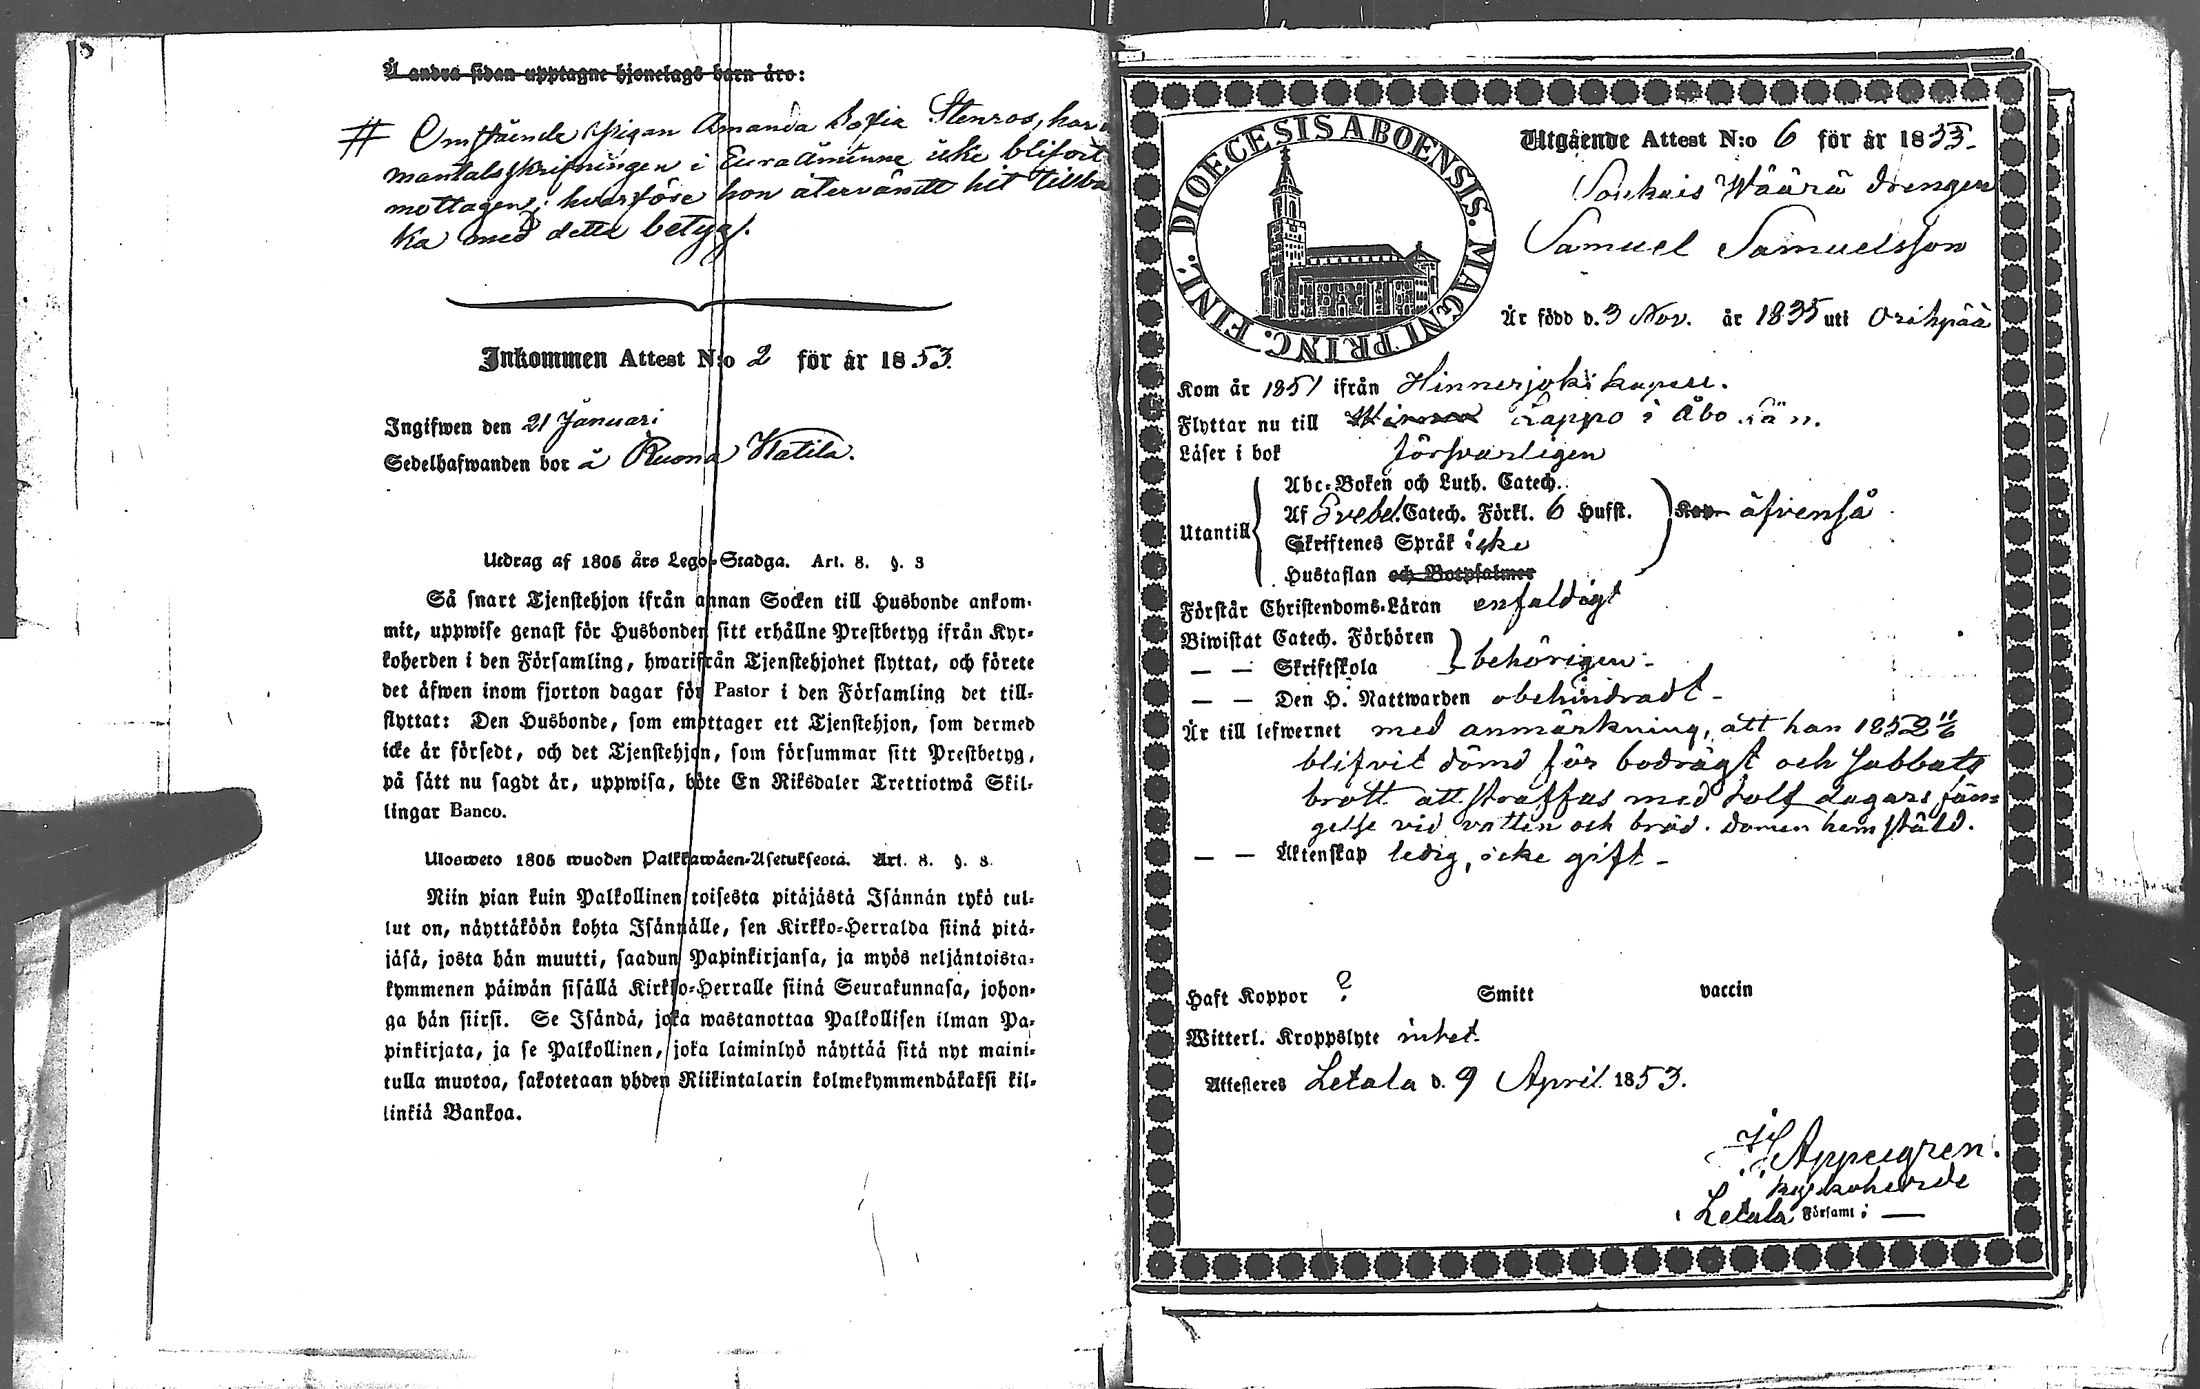 Å andra sidan upptagne hjonelags barn äro:
# Omstående Pigan Amanda Sofia Stenros, har
mantalsskrifningen i Euraåminne icke blifvit
mottagen, hvarföre hon återvändt hit tillba
ka med detta betyg.
Inkommen Attest N:o 2 för år 1853.
Ingifwen den 21 Januari
Sedelhafwanden bor å Ruona Katila.
Utdrag af 1805 års Lego-Stadga. Art. 8. §. 3
Så snart Tjenstehjon ifrån annan Socken till Husbonde ankom-
mit, uppwise genast för Husbonden sitt erhållne Prestbetyg ifrån Kyr-
koherden i den Församling, hwarifrån Tjenstehjonet flyttat, och förete
det äfwen inom fjorton dagar för Pastor i den Församling det till-
flyttat: Den Husbonde, som emottager ett Tjenstehjon, som dermed
icke är försedt, och det Tjenstehjon, som försummar sitt Prestbetyg,
på sätt nu sagdt är, uppwisa, böte En Riksdaler Trettiotwå Skil-
lingar Banco.
Ulosweto 1805 wuoden Palkkawäen-Asetuksesta. Art. 8. §. 8.
Niin pian kuin Palkollinen toisesta pitäjästä Isännän tykö tul-
lut on, näyttäköön kohta Isännälle, sen Kirkko-Herralda siinä pitä-
jäsä, josta hän muutti, saadun Papinkirjansa, ja myös neljäntoista-
kymmenen päiwän sisällä Kirkko-Herralle siinä Seurakunnasa, johon-
ga hän siirsi. Se Isändä, joka wastanottaa Palkollisen ilman Pa-
pinkirjata, ja se Palkollinen, joka laiminlyö näyttää sitä nyt maini-
tulla muotoa, sakotetaan yhden Riikintalarin kolmekymmendäkaksi kil-
linkiä Bankoa.
DIOECESIS ABOENSIS. MAGNI PRINC. FINL.
Utgående Attest N:o 6 för år 1853.
Soukais Wäärä drengen
Samuel Samuelsson
Är född d. 3 Nov. år 1835 uti Orihpää
Kom år 1851 ifrån Hinnerjoki kapell.
Flyttar nu till Lappo i Åbo Län.
Läser i bok försvarligen
Utantill
Abc-Boken och Luth. Catech.
Af Svebel. Catech. Förkl. 6 Hufst. äfvenså
Skriftenes Språk icke
Hustaflan och Botpsalmer
Förstår Christendoms-Läran enfaldigt
Biwistat Catech. Förhören
— — Skriftskola behörigen
— — Den H. Nattwarden obehindradt
Är till lefwernet med anmärkning, att han 1852 11/6
blifvit dömd för bodrägt och sabbats
brott att straffas med tolf dagars fän=
gelse vid vatten och bröd. domen hemstäld.
— — Äktenskap ledig, icke gift
Haft Koppor ? Smitt vaccin
Witterl. Kroppslyte intet
Attesteres Letala d. 9 April 1853.
Appelgren.
kyrkoherde
i Letala Församl: